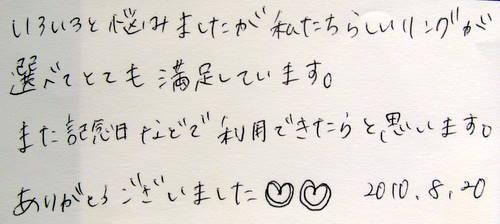 いろいろと悩みましたが私たちらしいリングが
選べてとても満足しています。
また記念日などで利用できたらと思います。
ありがとうございました♡♡ 2010.8.20